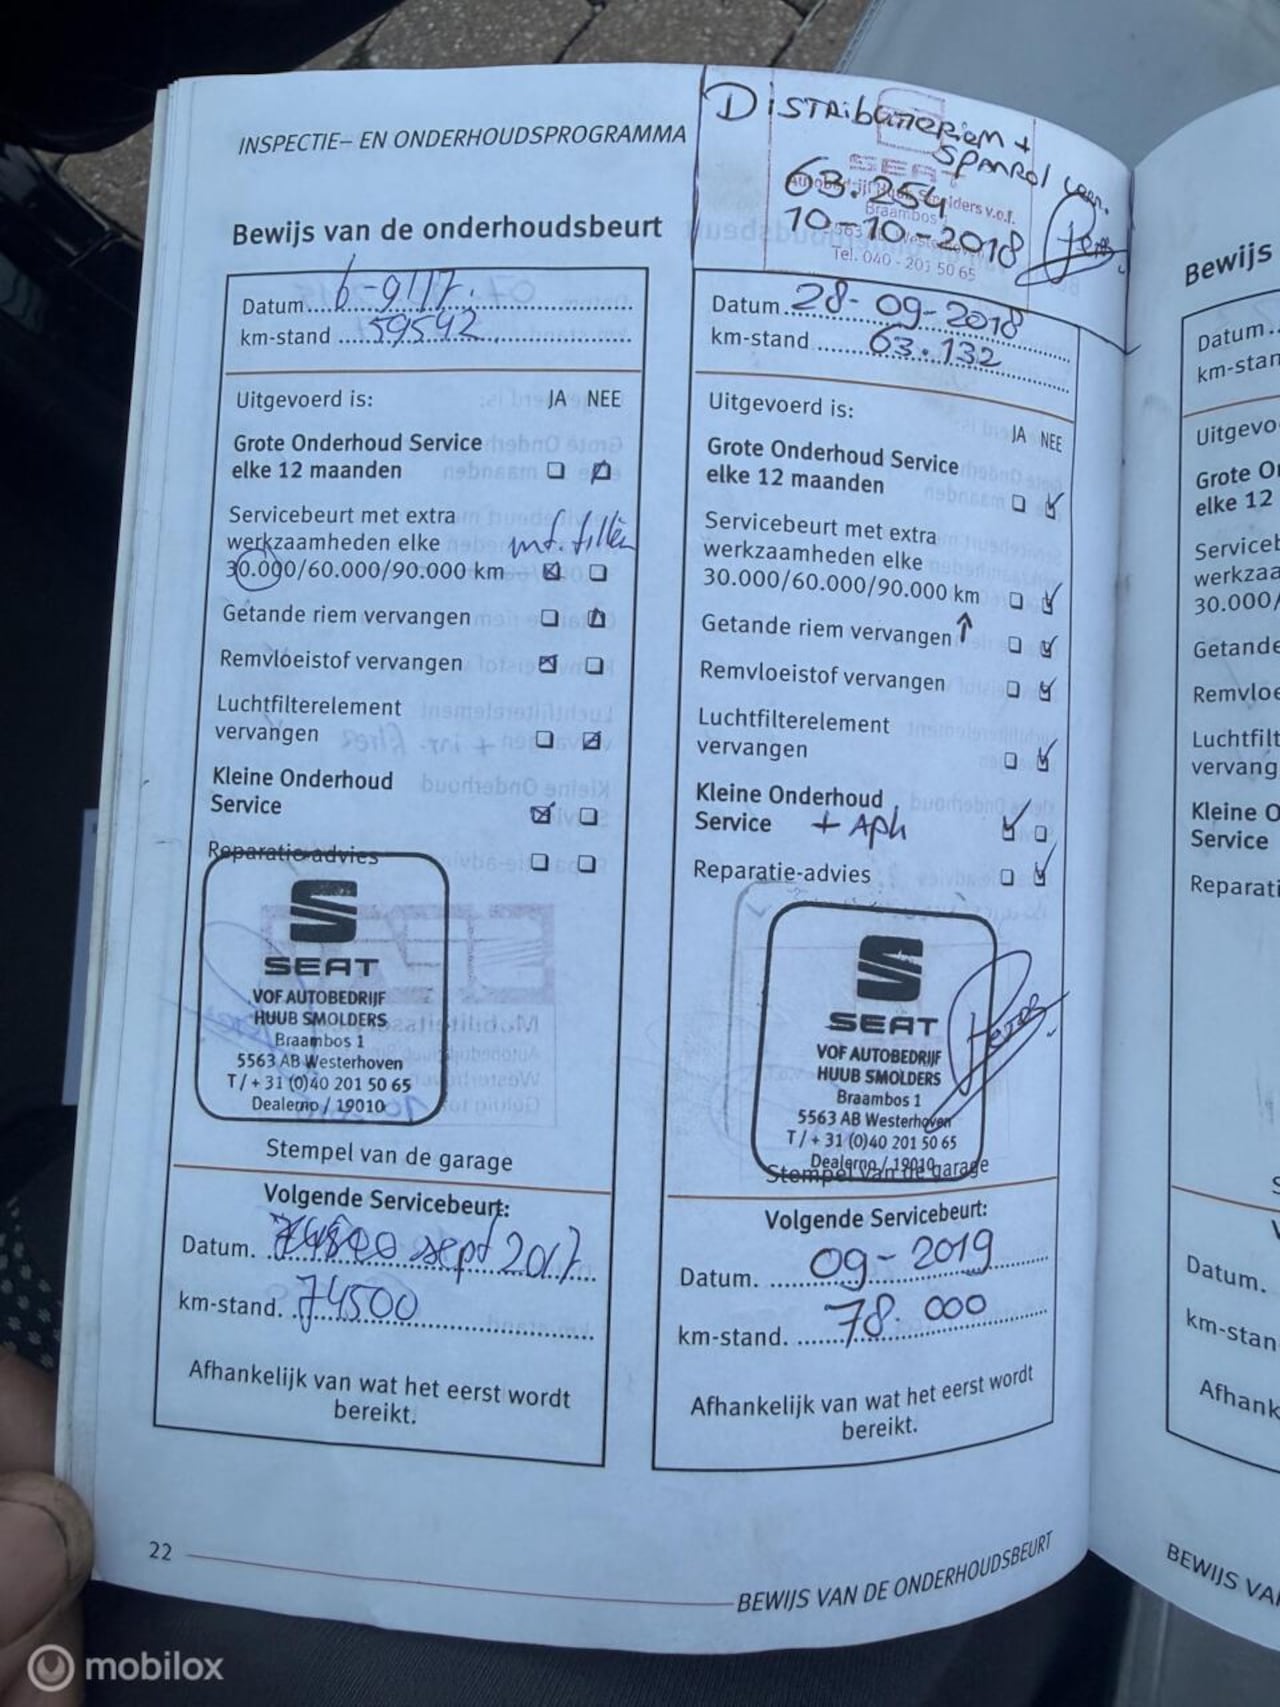 INSPECTIE– EN ONDERHOUDSPROGRAMMA
Distributieriem +
spanrol verv.
63.254
10-10-2018
SEAT
Autobedrijf Huub Smolders v.o.f.
Braambos 1
5563 AB Westerhoven
Tel. 040 - 201 50 65
Bewijs van de onderhoudsbeurt
Datum
km-stand 59542
Uitgevoerd is:
JA NEE
Grote Onderhoud Service
elke 12 maanden
Servicebeurt met extra
werkzaamheden elke
30.000/60.000/90.000 km
Getande riem vervangen
Remvloeistof vervangen
Luchtfilterelement
vervangen
Kleine Onderhoud
Service
Reparatie-advies
SEAT
VOF AUTOBEDRIJF
HUUB SMOLDERS
Braambos 1
5563 AB Westerhoven
T / + 31 (0)40 201 50 65
Dealerno / 19010
Stempel van de garage
Volgende Servicebeurt:
Datum. sept 2017
km-stand. 74500
Afhankelijk van wat het eerst wordt
bereikt.
Datum 28-09-2018
km-stand 63.132
Uitgevoerd is:
JA NEE
Grote Onderhoud Service
elke 12 maanden
Servicebeurt met extra
werkzaamheden elke
30.000/60.000/90.000 km
Getande riem vervangen
Remvloeistof vervangen
Luchtfilterelement
vervangen
Kleine Onderhoud
Service + Apk
Reparatie-advies
SEAT
VOF AUTOBEDRIJF
HUUB SMOLDERS
Braambos 1
5563 AB Westerhoven
T / + 31 (0)40 201 50 65
Dealerno / 19010
Stempel van de garage
Volgende Servicebeurt:
Datum. 09-2019
km-stand. 78.000
Afhankelijk van wat het eerst wordt
bereikt.
22
BEWIJS VAN DE ONDERHOUDSBEURT
Bewijs
Datum
km-stan
Uitgevo
Grote O
elke 12
Service
werkzaa
30.000/
Getande
Remvloe
Luchtfilt
vervang
Kleine O
Service
Reparati
Datum.
km-stan
Afhank
BEWIJS VA
mobilox